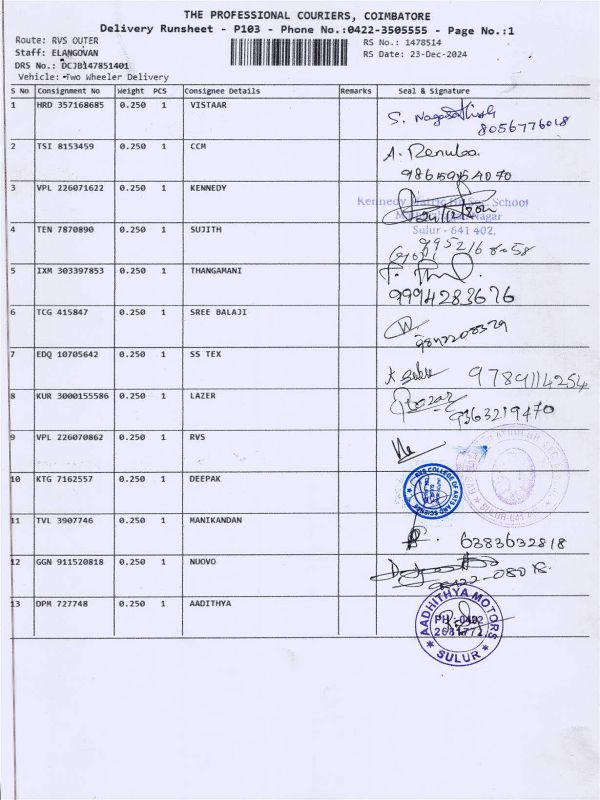 THE PROFESSIONAL COURIERS, COIMBATORE
Delivery Runsheet - P103 - Phone No.:0422-3505555 - Page No.:1
Route: RVS OUTER
RS No.: 1478514
Staff: ELANGOVAN
RS Date: 23-Dec-2024
DRS No.: DCJB147851401
Vehicle: Two Wheeler Delivery
S No Consignment No Weight PCS Consignee Details Remarks Seal & Signature
1 HRD 357168685 0.250 1 VISTAAR
8056776018
2 TSI 8153459 0.250 1 CCM
A. Renuka.
3 VPL 226071622 0.250 1 KENNEDY
Sulur - 641 402.
4 TEN 7870890 0.250 1 SUJITH
5 IXM 303397853 0.250 1 THANGAMANI
9994283676
6 TCG 415847 0.250 1 SREE BALAJI
7 EDQ 10705642 0.250 1 SS TEX
9789114254
8 KUR 3000155586 0.250 1 LAZER
9363219470
9 VPL 226070862 0.250 1 RVS
RVS COLLEGE OF ARTS AND SCIENCE
10 KTG 7162557 0.250 1 DEEPAK
11 TVL 3907746 0.250 1 MANIKANDAN
6383632818
12 GGN 911520818 0.250 1 NUOVO
13 DPM 727748 0.250 1 AADITHYA
AADHITHYA MOTORS
SULUR